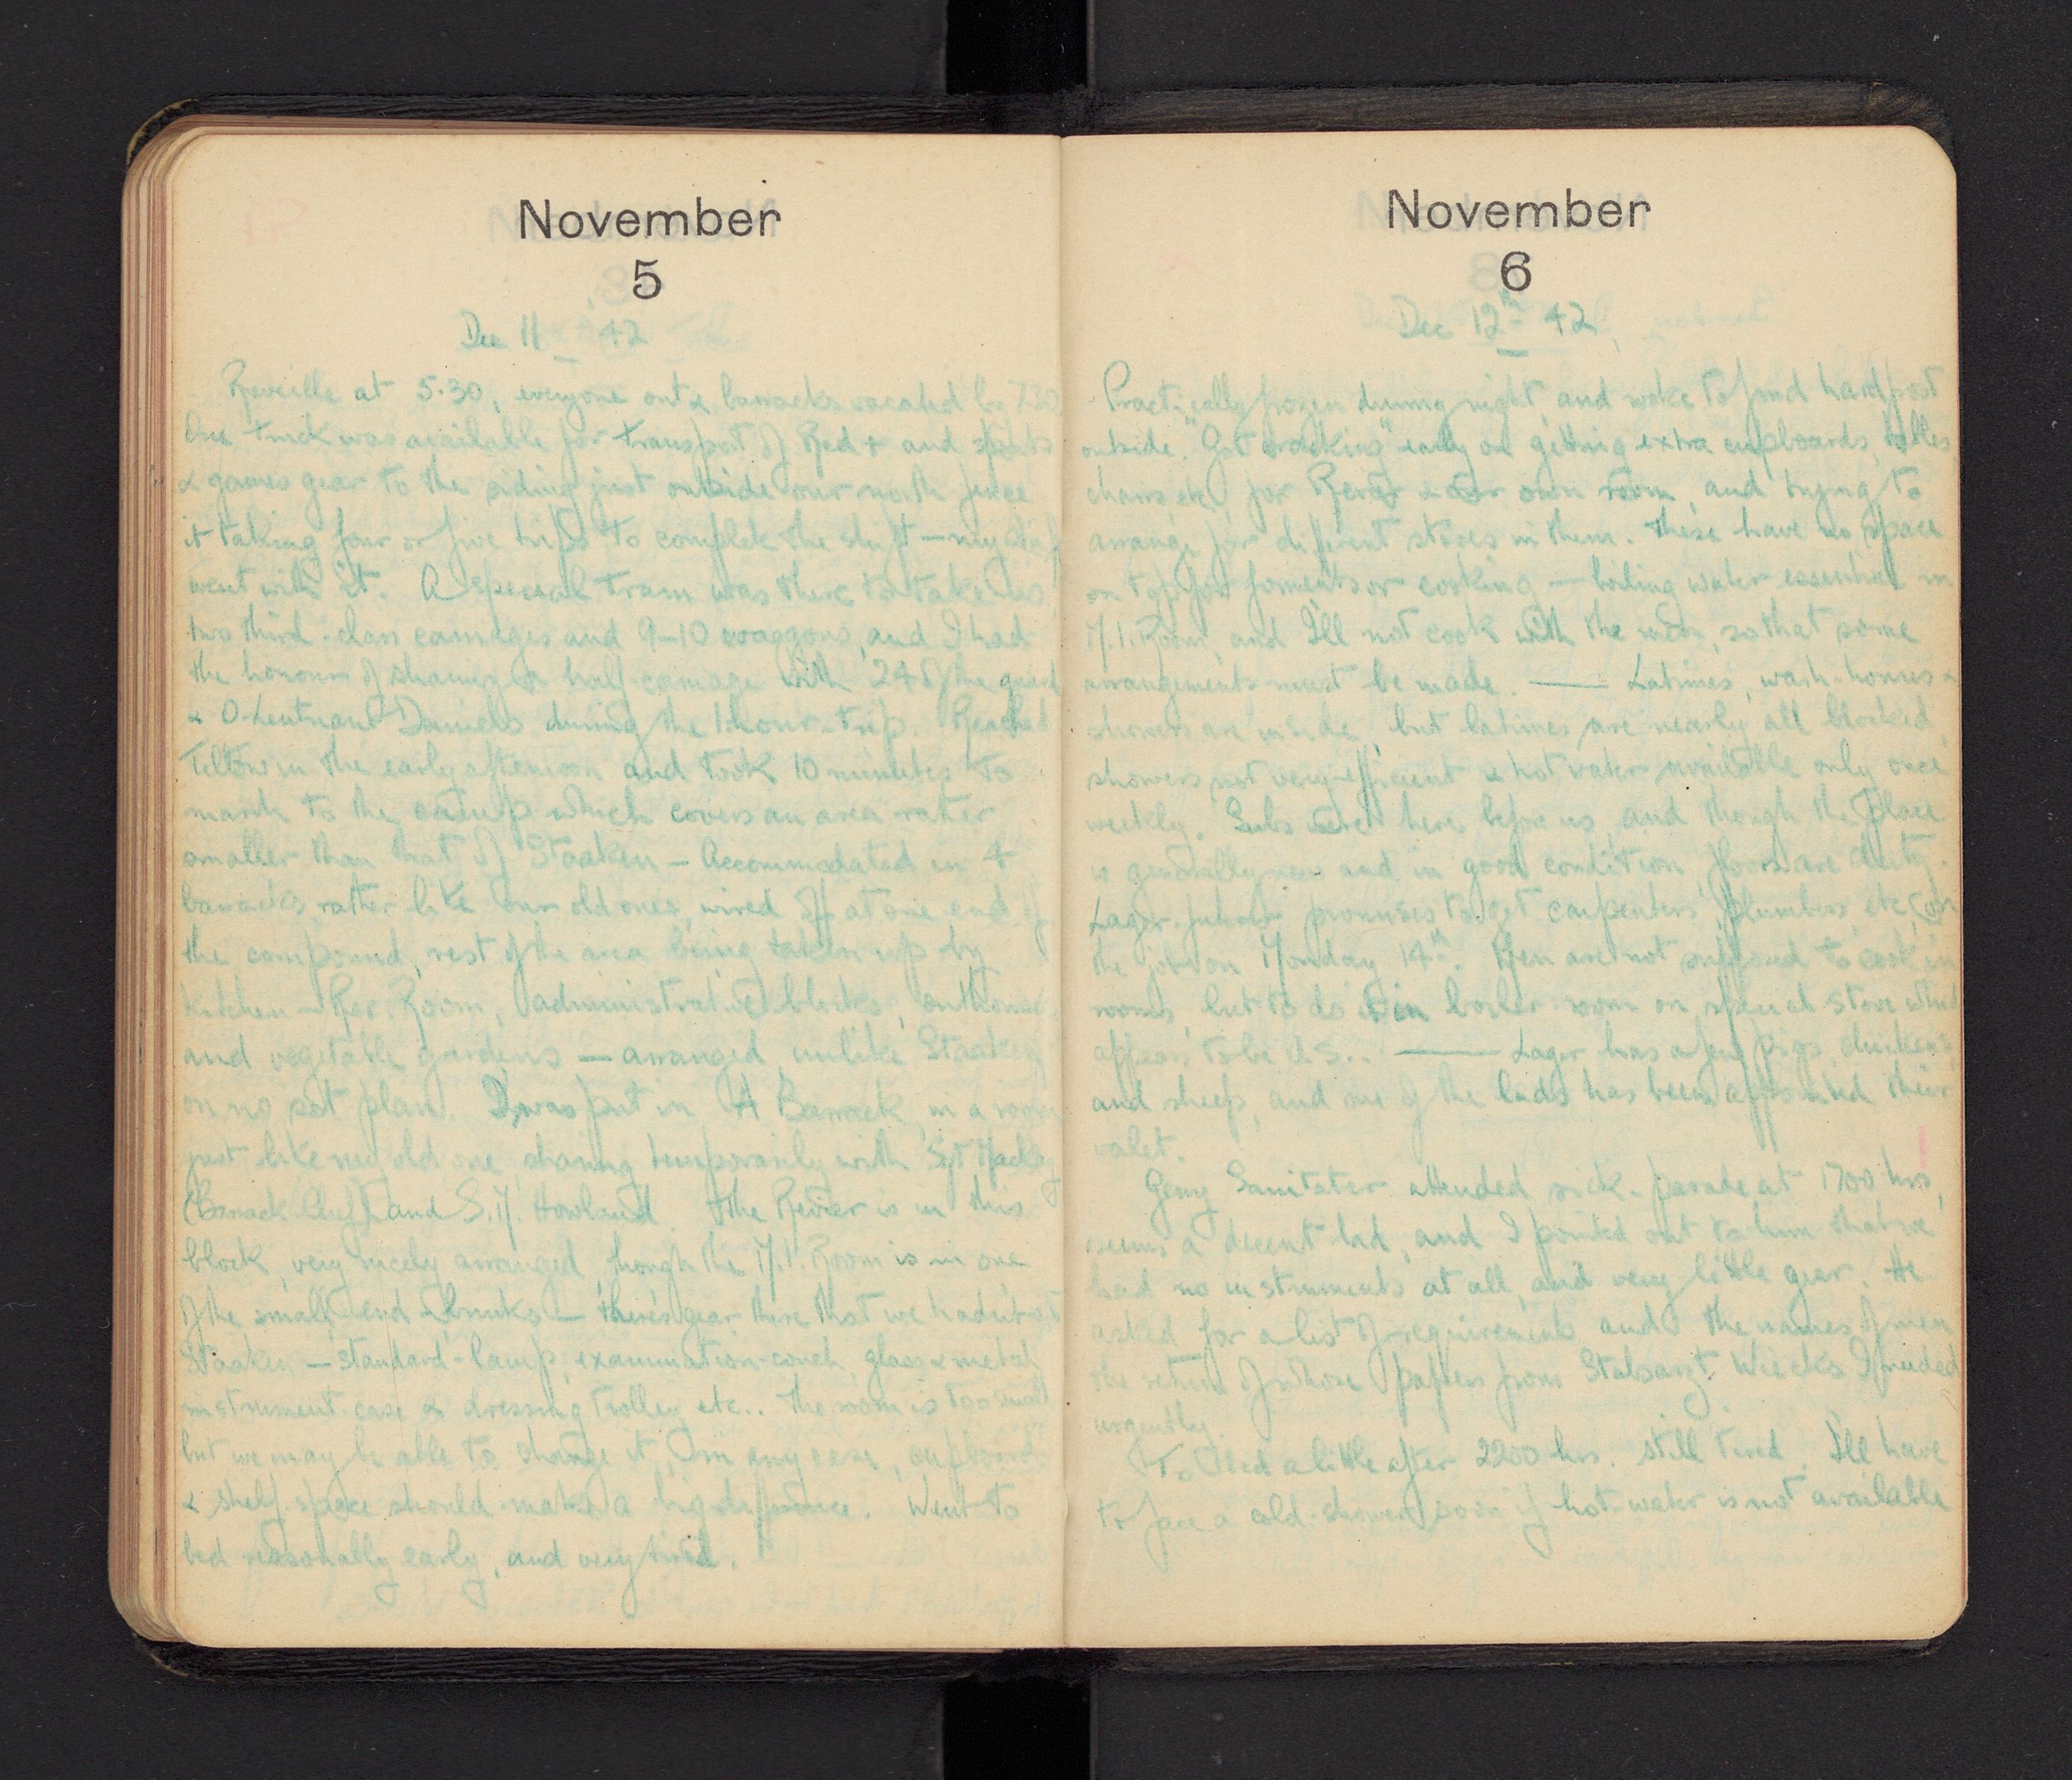 November
5
Dec 11 42
Reveille at 5.30, everyone out & barracks vacated by 7.30
One truck was available for transport of Red + and sports
& games gear to the siding just outside our north fence
it taking four or five trips to complete the shift – my staff
went with it. A special train was there to take us
two third-class carriages and 9–10 waggons, and I had
the honour of sharing a half-carriage with 24 of the guard
& O-Leutnant Daniels during the 1 hour-trip. Reached
Teltow in the early afternoon and took 10 minutes to
march to the camp which covers an area rather
smaller than that of Staaken – Accommodated in 4
barracks rather like our old ones, wired off at one end of
the compound, rest of the area being taken up by
Kitchen – Rec. Room, administrative blocks, outhouses
and vegetable gardens — arranged, unlike Staaken
on no set plan. I was put in A Barrack, in a room
just like my old one, sharing temporarily with Sgt Mackay
(Barrack Chief) and S.M. Howland. The Revier is in this
block, very nicely arranged, though the M.I. Room is in one
of the small end – there's gear there that we hadn't at
Staaken – standard-lamp, examination-couch, glass & metal
instrument-case & dressing trolley etc.. The room is too small
but we may be able to change it, in any case, cupboard
& shelf space should make a big difference. Went to
bed reasonably early, and very tired.
November
6
Dec 12th 42
Practically frozen during night, and woke to find hard frost
outside. "Got cracking" early on getting extra cupboards, tables
chairs, etc, for Revier & our own room, and trying to
arrange for different stoves in them. These have no space
on top for foments or cooking — boiling water essential in
M.I. Room, and I'll not cook with the men, so that some
arrangements must be made. —— Latrines, wash-houses &
showers are inside, but latrines are nearly all blocked,
showers not very efficient & hot water available only once
weekly. Subs were here before us, and though the place
is generally new and in good condition, floors are dirty.
Lager-fuhrer promises to get carpenters, plumbers, etc, on
the job on Monday 14th. Men are not supposed to cook in
rooms, but to do it in boiler room on special stove which
appears to be U.S.. —— Lager has a few pigs, chickens
and sheep, and one of the lads has been appointed their
valet.
Gerry Sanitater attended sick-parade at 1700 hrs,
seems a decent lad, and I pointed out to him that we
had no instruments at all, and very little gear. He
asked for a list of requirements and the names of men
the return of whose papers from Stabsarzt Wiecks I needed
urgently.
To bed a little after 2200 hrs. still tired. I'll have
to face a cold-shower soon if hot-water is not available